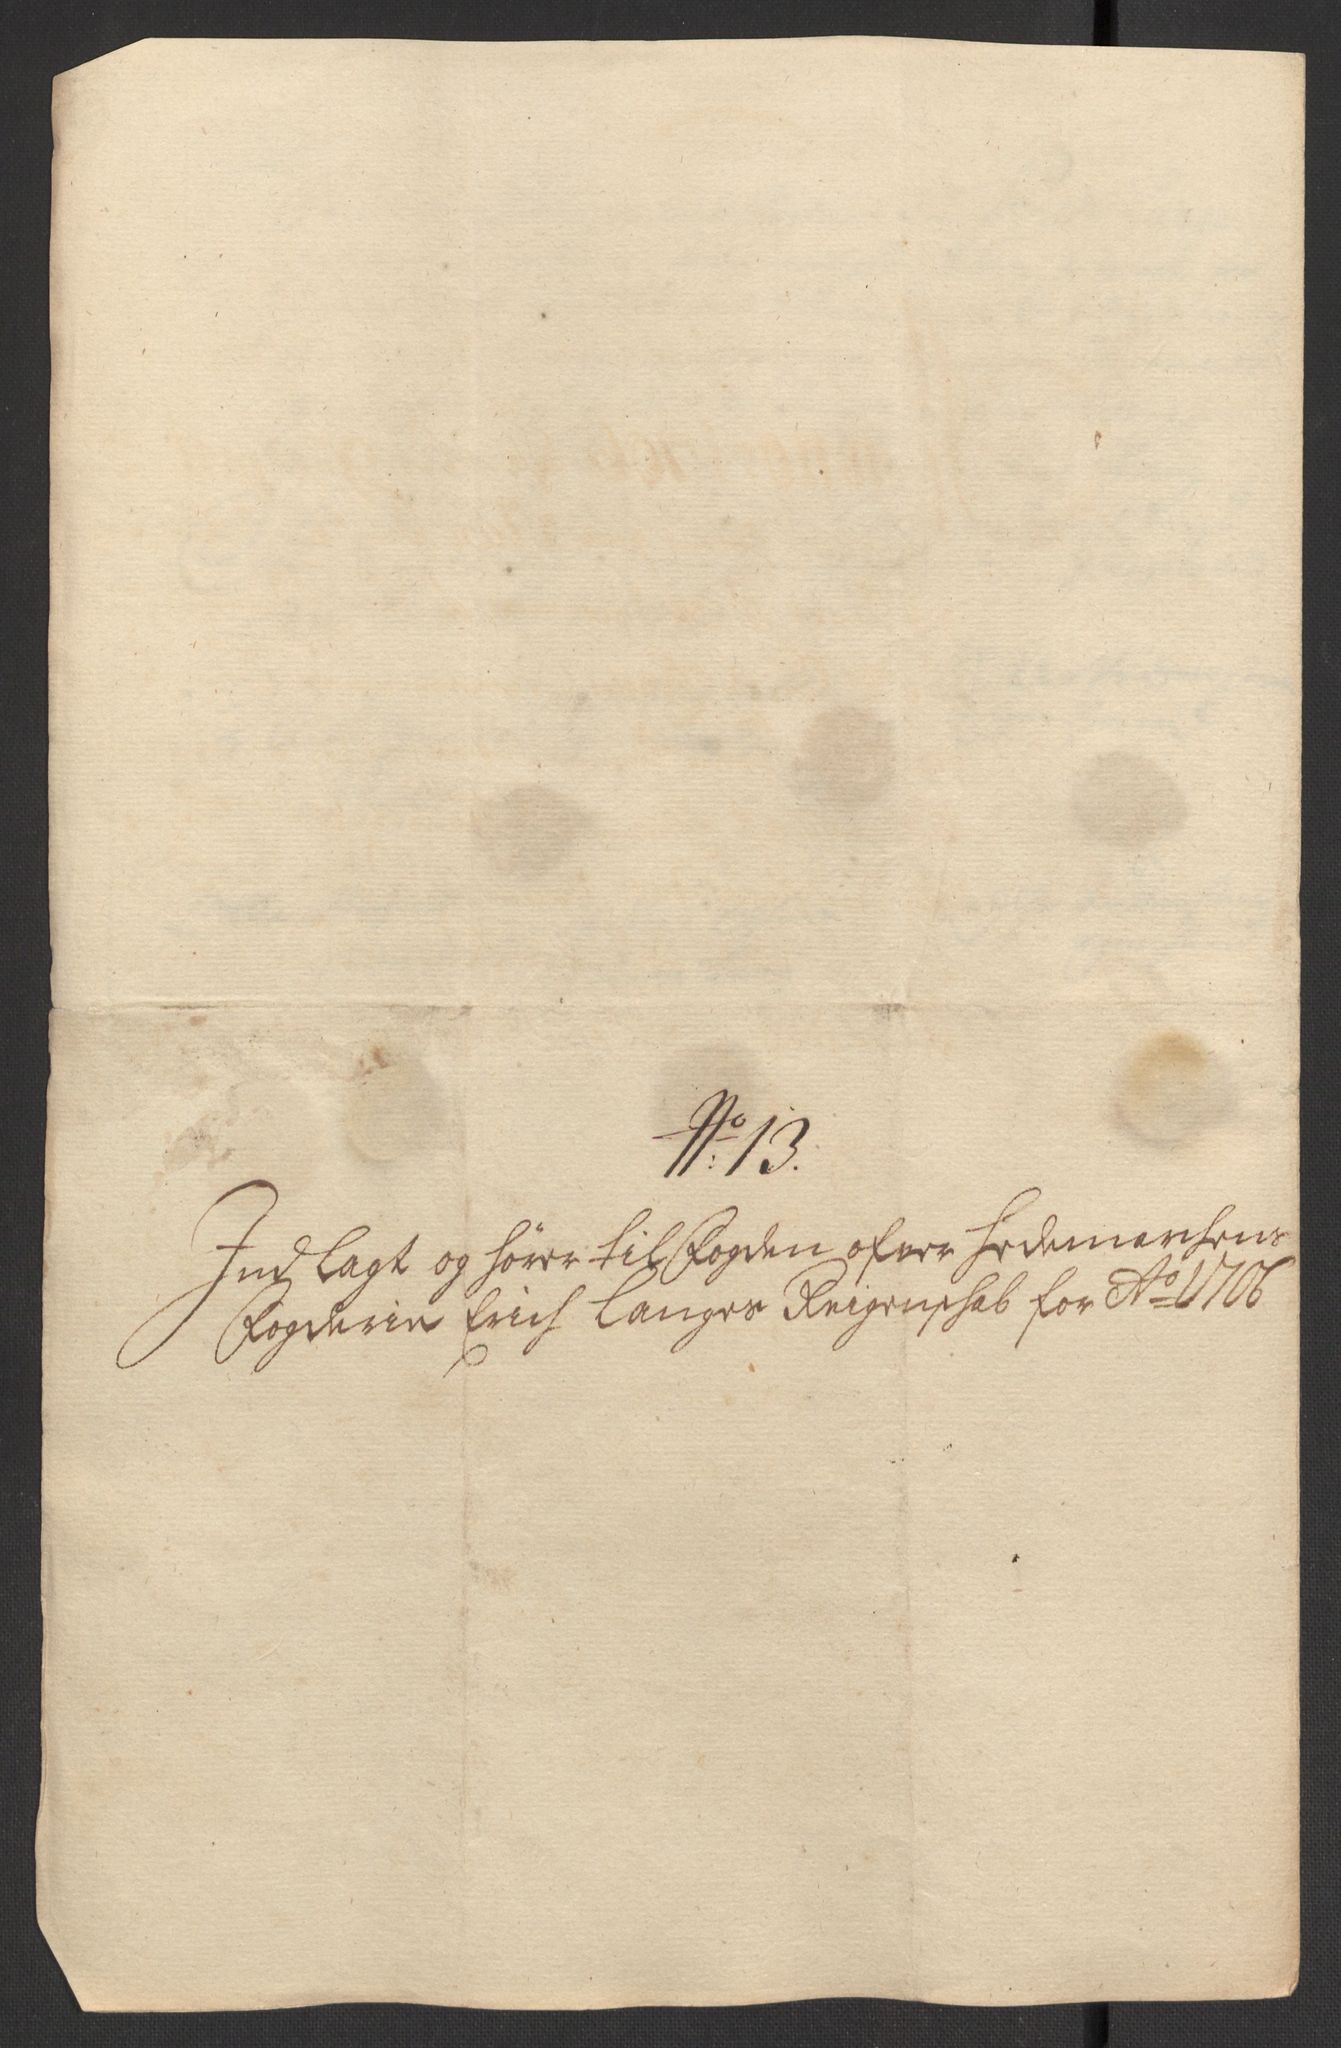 No: 13.
Indlagt og hörer til Fogden ofver Hedemarchens
Fogderie Erich Langes Reigenschab for Ao 1706